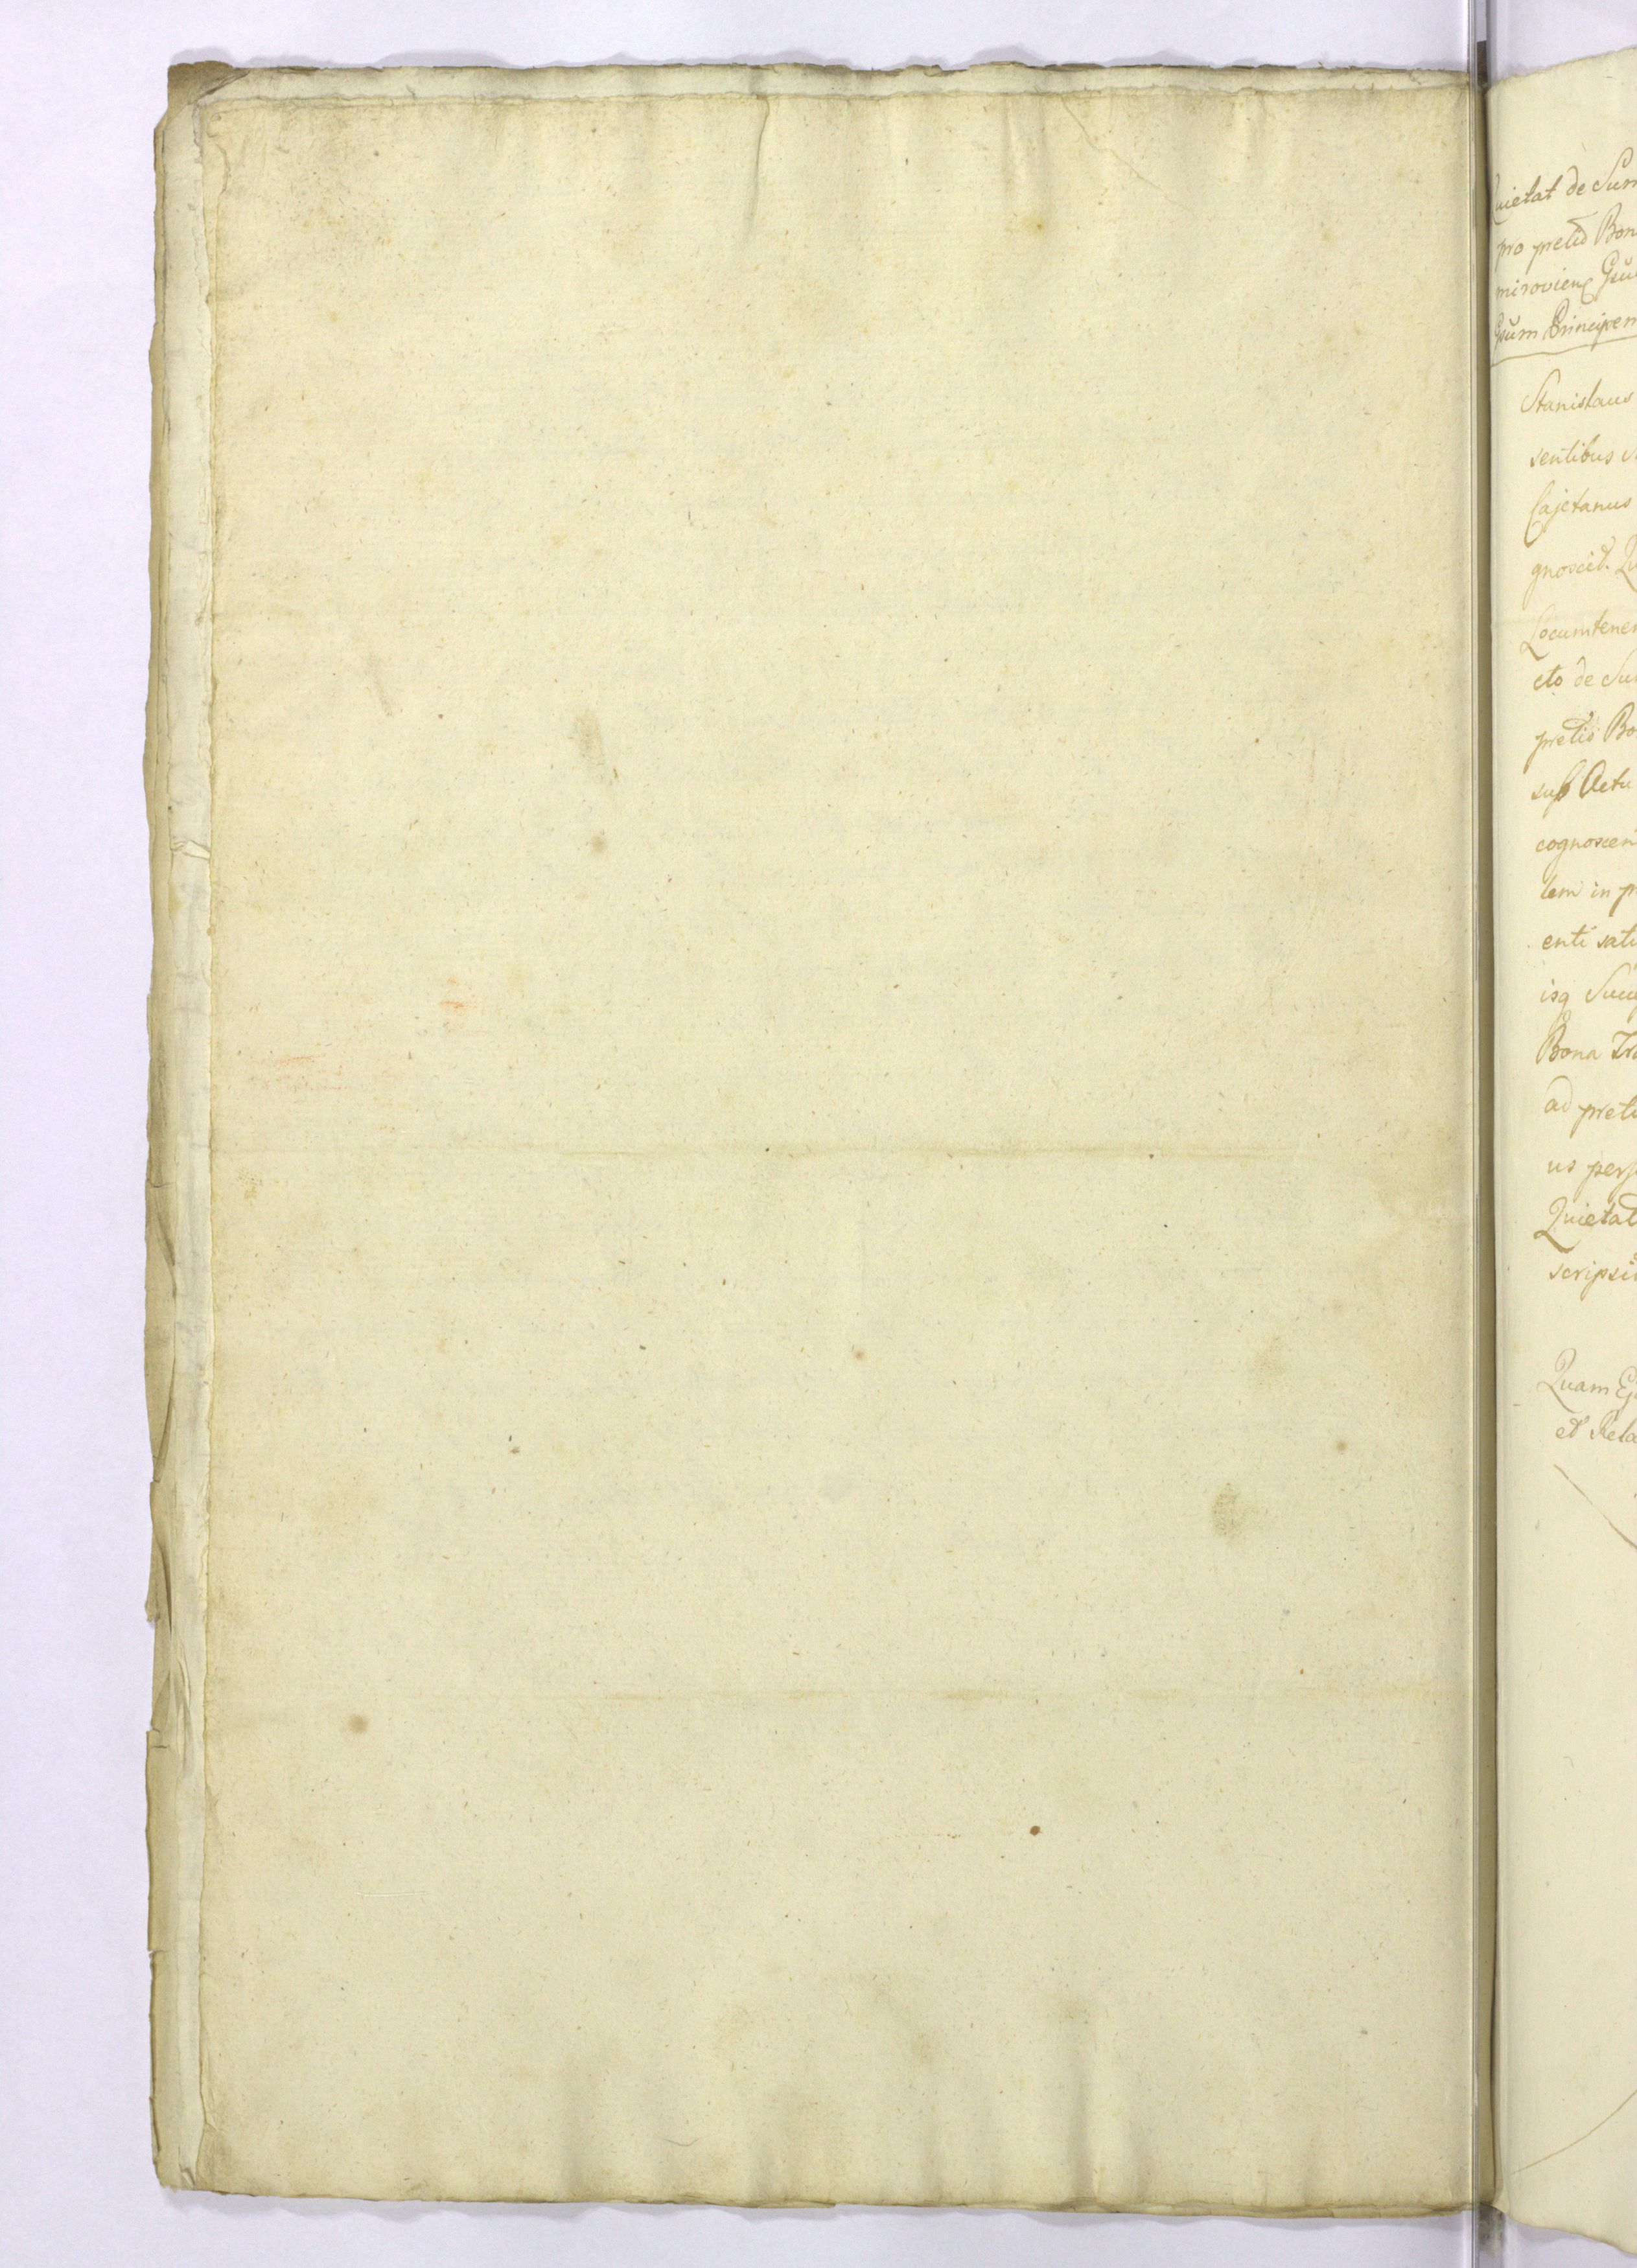 Quietat de Sum
pro pretio Bon
miroviens Gsu
Gsum Principem
Stanislaus
sentibus
Cajetanus
gnoscit. Qu
Locumtenen
cto de Su
pretio Bo
sub Actu
cognoscen
tem in p
enti sati
isq Succ
Bona Tra
ad preti
us pers
Quietat
scripsi
Quam
et Rela